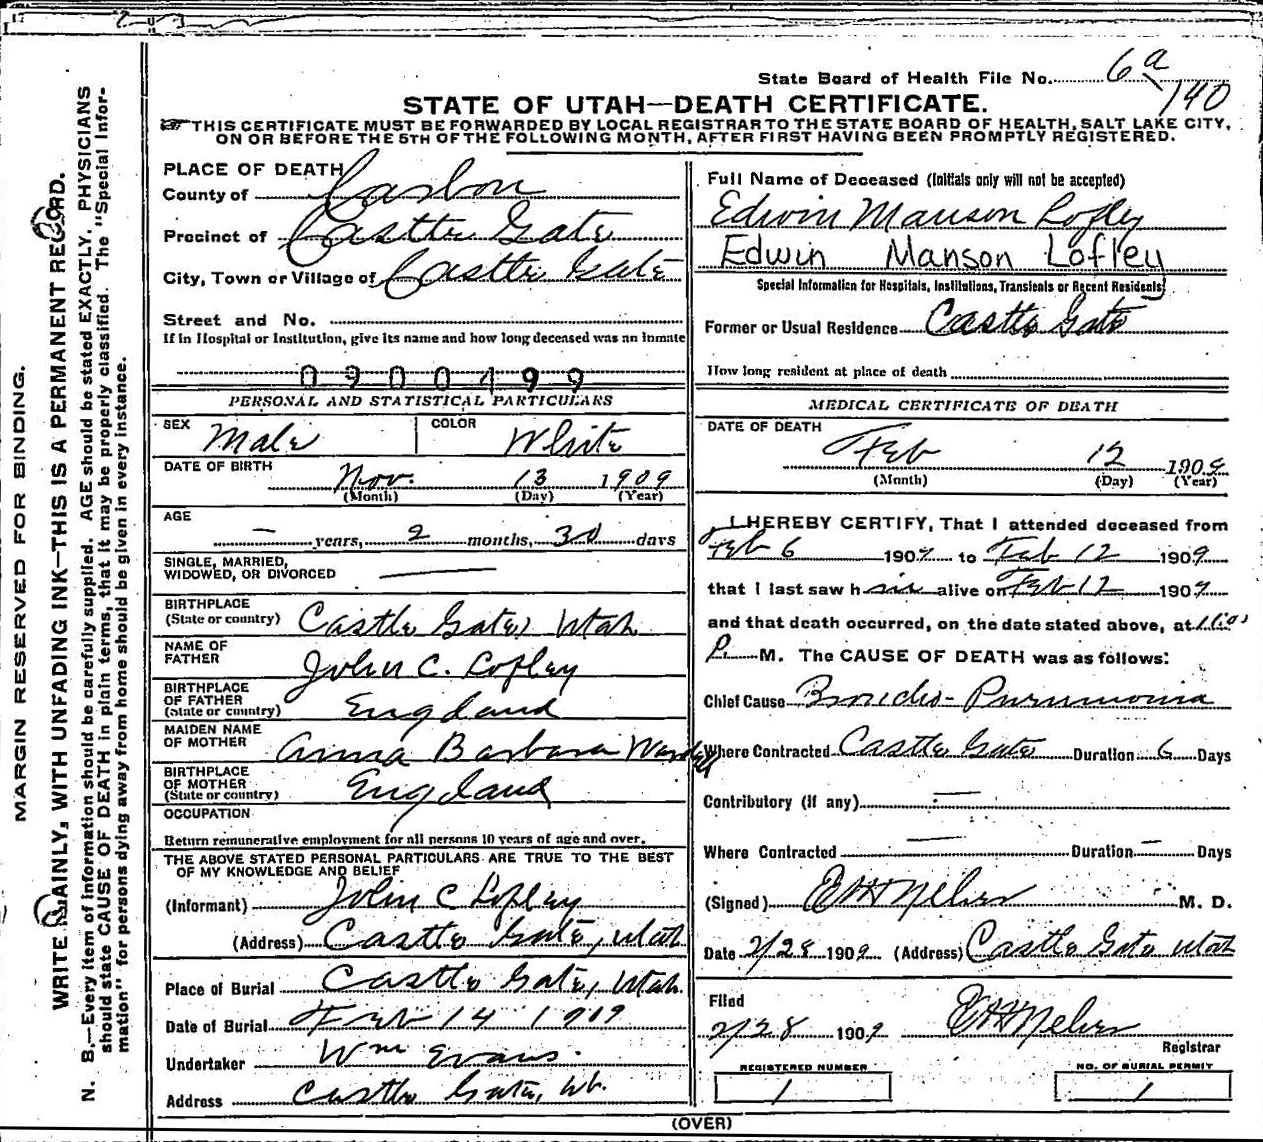 State Board of Health File No. 6a
140
STATE OF UTAH—DEATH CERTIFICATE.
THIS CERTIFICATE MUST BE FORWARDED BY LOCAL REGISTRAR TO THE STATE BOARD OF HEALTH, SALT LAKE CITY,
ON OR BEFORE THE 5TH OF THE FOLLOWING MONTH, AFTER FIRST HAVING BEEN PROMPTLY REGISTERED.
MARGIN RESERVED FOR BINDING.
WRITE PLAINLY, WITH UNFADING INK—THIS IS A PERMANENT RECORD.
N. B.—Every item of information should be carefully supplied. AGE should be stated EXACTLY. PHYSICIANS
should state CAUSE OF DEATH in plain terms, that it may be properly classified. The "Special Infor-
mation" for persons dying away from home should be given in every instance.
PLACE OF DEATH
County of Carbon
Precinct of Castle Gate
City, Town or Village of Castle Gate
Street and No.
If in Hospital or Institution, give its name and how long deceased was an inmate
0900499
PERSONAL AND STATISTICAL PARTICULARS
SEX Male COLOR White
DATE OF BIRTH Nov. 13 1909
(Month) (Day) (Year)
AGE
— years, 2 months, 30 days
SINGLE, MARRIED,
WIDOWED, OR DIVORCED —
BIRTHPLACE
(State or country) Castle Gate, Utah
NAME OF
FATHER John C. Lofley
BIRTHPLACE
OF FATHER
(State or country) England
MAIDEN NAME
OF MOTHER Anna Barbara Wardell
BIRTHPLACE
OF MOTHER
(State or country) England
OCCUPATION
Return remunerative employment for all persons 10 years of age and over.
THE ABOVE STATED PERSONAL PARTICULARS ARE TRUE TO THE BEST
OF MY KNOWLEDGE AND BELIEF
(Informant) John C Lofley
(Address) Castle Gate, Utah
Place of Burial Castle Gate, Utah.
Date of Burial Feb 14 1909
Undertaker Wm Evans.
Address Castle Gate, Ut.
Full Name of Deceased (Initials only will not be accepted)
Edwin Manson Lofley
Edwin Manson Lofley
Special Information for Hospitals, Institutions, Transients or Recent Residents
Former or Usual Residence Castle Gate
How long resident at place of death
MEDICAL CERTIFICATE OF DEATH
DATE OF DEATH
Feb 12 1909
(Month) (Day) (Year)
I HEREBY CERTIFY, That I attended deceased from
Feb 6 1909 to Feb 12 1909
that I last saw h alive on Feb 12 1909
and that death occurred, on the date stated above, at
P. M. The CAUSE OF DEATH was as follows:
Chief Cause Broncho-Pneumonia
Where Contracted Castle Gate Duration 6 Days
Contributory (if any) —
Where Contracted — Duration — Days
(Signed) M. D.
Date 2/28 1909 (Address) Castle Gate Utah
Filed
2/28 1909
Registrar
REGISTERED NUMBER
1
NO. OF BURIAL PERMIT
1
(OVER)